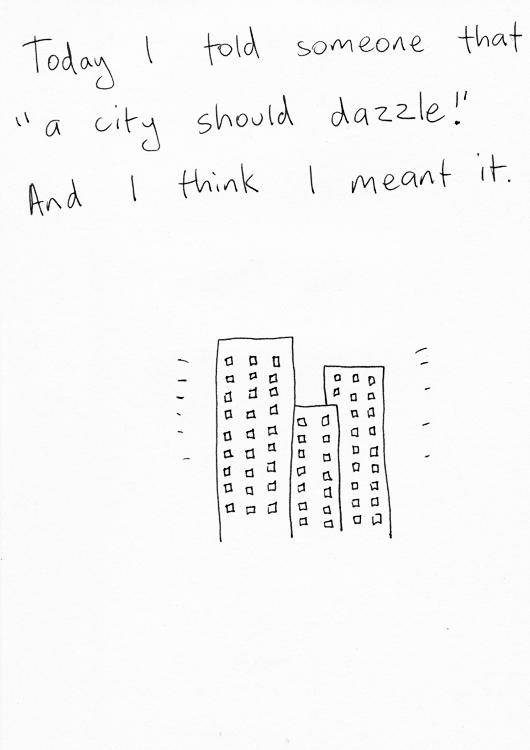 Today I told someone that
"a city should dazzle!"
And I think I meant it.